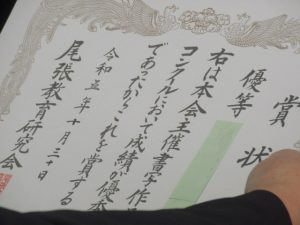 賞状
優等
右は本会主催書写作
コンクールにおいて成績が優
であったからこれを賞する
令和五年十月三十日
尾張教育研究会